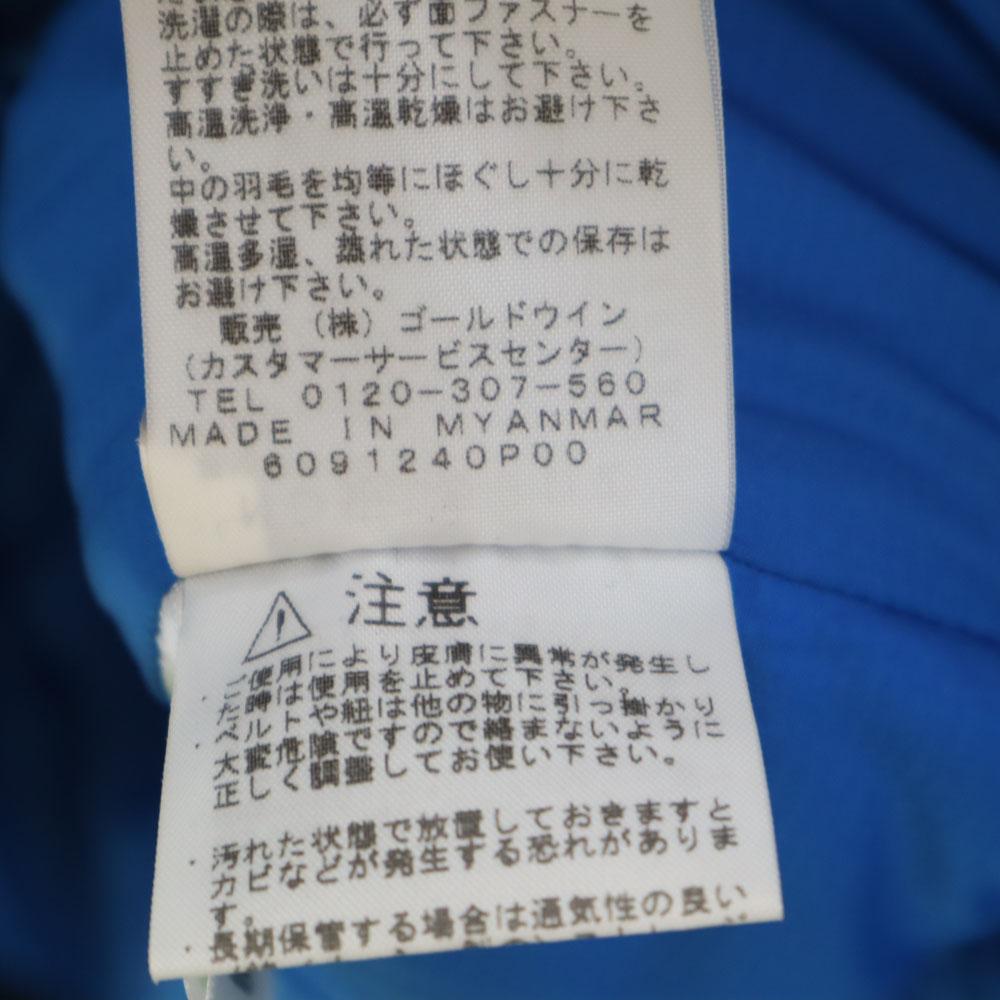 洗濯の際は、必ず面ファスナーを
止めた状態で行って下さい。
すすぎ洗いは十分にして下さい。
高温洗浄・高温乾燥はお避け下さ
い。
中の羽毛を均等にほぐし十分に乾
燥させて下さい。
高温多湿、蒸れた状態での保存は
お避け下さい。
販売 (株) ゴールドウイン
(カスタマーサービスセンター)
TEL 0120-307-560
MADE IN MYANMAR
6091240P00
注意
・ご使用により皮膚に異常が発生し
た時は使用を止めて下さい。
・ベルトや紐は他の物に引っ掛かり
大変危険ですので絡まないように
正しく調整してお使い下さい。
・汚れた状態で放置しておきますと
カビなどが発生する恐れがありま
す。
・長期保管する場合は通気性の良い